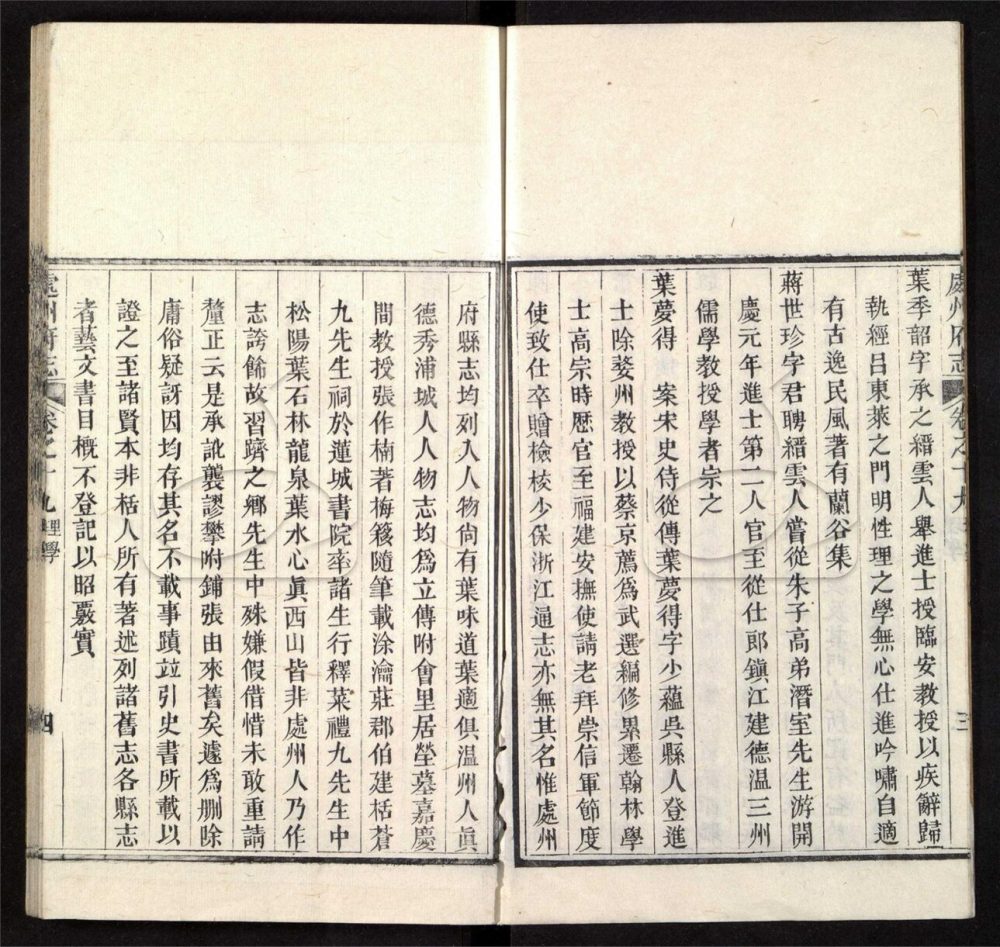 處州府志 卷之十九 三
葉季韶字承之縉雲人舉進士授臨安教授以疾辭歸
執經呂東萊之門明性理之學無心仕進吟嘯自適
有古逸民風著有蘭谷集
蔣世珍字君聘縉雲人嘗從朱子高弟潛室先生游開
慶元年進士第二人官至從仕郎鎮江建德溫三州
儒學教授學者宗之
葉夢得 案宋史侍從傳葉夢得字少蘊吳縣人登進
士除婺州教授以蔡京薦爲武選編修累遷翰林學
士高宗時歷官至福建安撫使請老拜崇信軍節度
使致仕卒贈檢校少保浙江通志亦無其名惟處州
府縣志均列入人物尙有葉味道葉適俱温州人眞
德秀浦城人人物志均爲立傳附會里居塋墓嘉慶
間教授張作楠著梅簃隨筆載涂瀹莊郡伯建栝蒼
九先生祠於蓮城書院率諸生行釋菜禮九先生中
松陽葉石林龍泉葉水心眞西山皆非處州人乃作
志誇餙故習躋之鄉先生中殊嫌假借惜未敢重請
釐正云是承訛襲謬攀附鋪張由來舊矣遽爲删除
庸俗疑訝因均存其名不載事蹟竝引史書所載以
證之至諸賢本非栝人所有著述列諸舊志各縣志
者藝文書目槪不登記以昭覈實
處州府志 卷之十九 理學 四